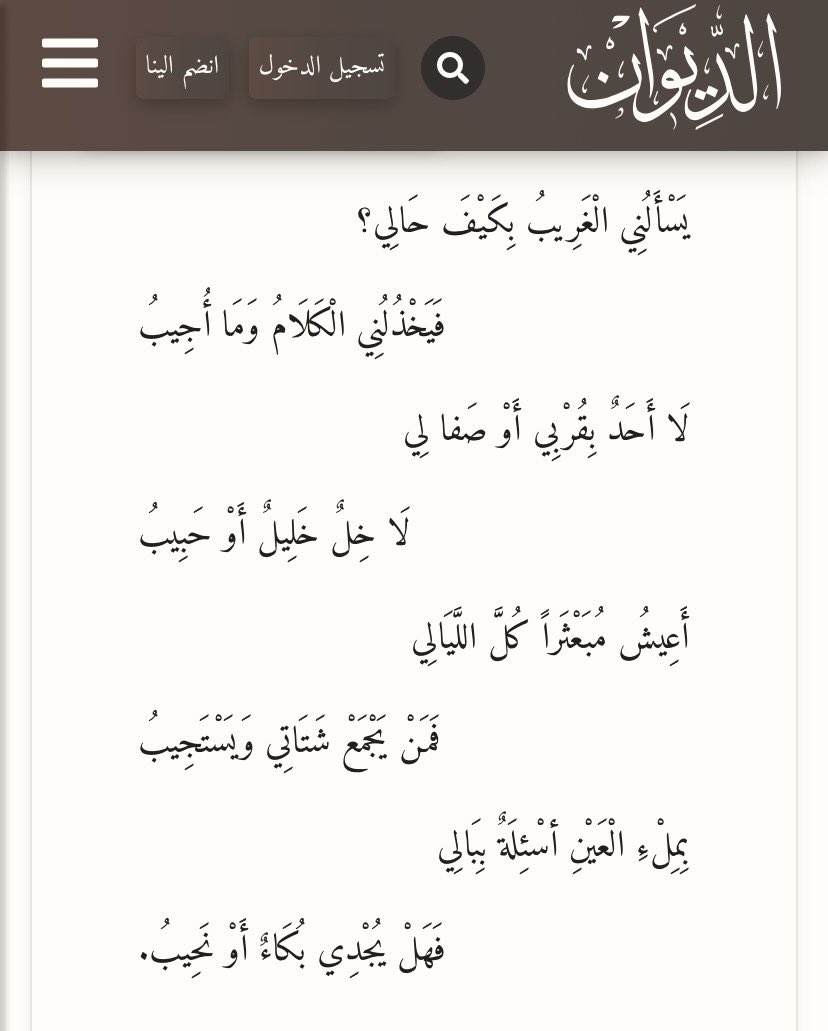 الدِّيوَان
تسجيل الدخول
انضم الينا
يَسْأَلُنِي الْغَرِيبُ بِكَيْفَ حَالِي؟
فَيَخْذُلُنِي الْكَلَامُ وَمَا أُجِيبُ
لَا أَحَدٌ بِقُرْبِي أَوْ صَفا لِي
لَا خِلٌ خَلِيلٌ أَوْ حَبِيبُ
أَعِيشُ مُبَعْثَراً كُلَّ اللَّيَالِي
فَمَنْ يَجْمَعْ شَتَاتِي وَيَسْتَجِيبُ
بِمِلْءِ الْعَيْنِ أسْئِلَةٌ بِبَالِي
فَهَلْ يُجْدِي بُكَاءٌ أَوْ نَحِيبُ.